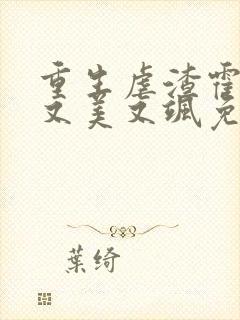 重生虐渣霍
又美又飒免
葉绮